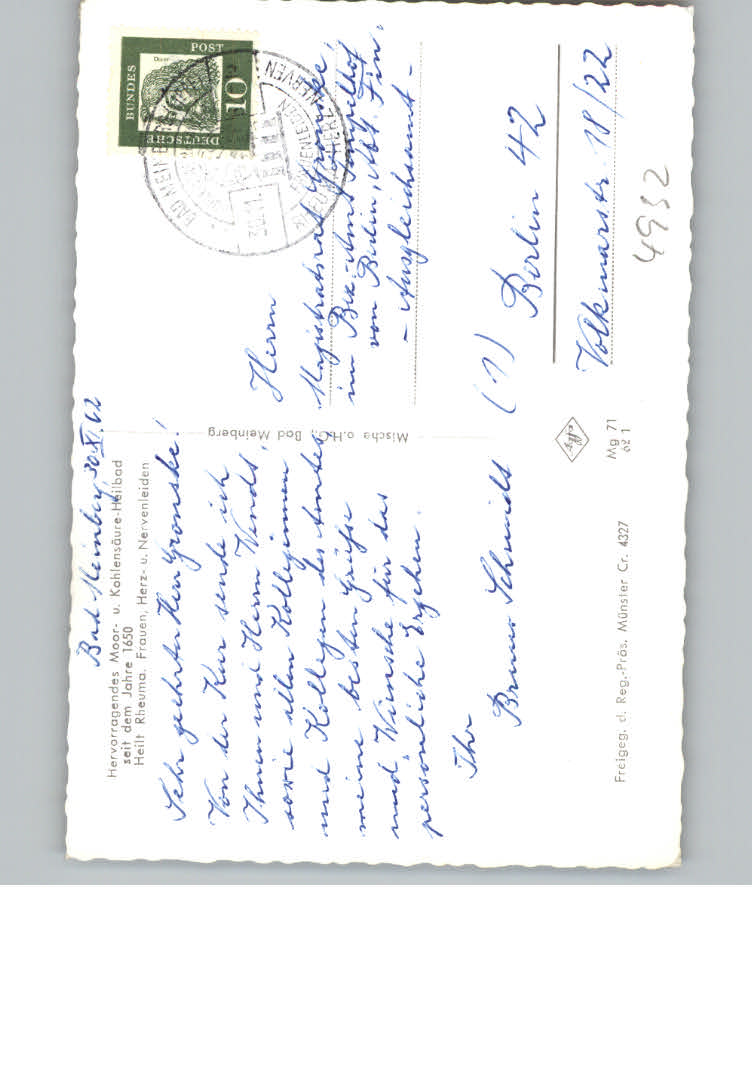 Bad Meinberg, 30.XI.62
Hervorragendes Moor- u. Kohlensäure-Heilbad
seit dem Jahre 1650
Heilt Rheuma, Frauen, Herz- u. Nervenleiden
Sehr geehrter Herr Gronske!
Von der Kur sende ich
Ihnen und Herrn Wendt,
sowie allen Kolleginnen
und Kollegen des Amtes
meine besten Grüße
und Wünsche für das
persönliche Ergehen.
Ihr
Bruno Schmidt
Freigeg. d. Reg.-Präs. Münster Cr. 4327
Mischa o.H.G., Bad Meinberg
Agfa
Mg 71
62 1
DEUTSCHE
BUNDES
POST
10
BAD MEINBERG
30.11.
HERZ-NERVEN
Herrn
Magistratsrat Gronske,
im Bez.-Amt Tempelhof
von Berlin, Abt. Fin.
- Ausgleichsamt -
(1) Berlin 42
Volkmarstr. 18/22
4932